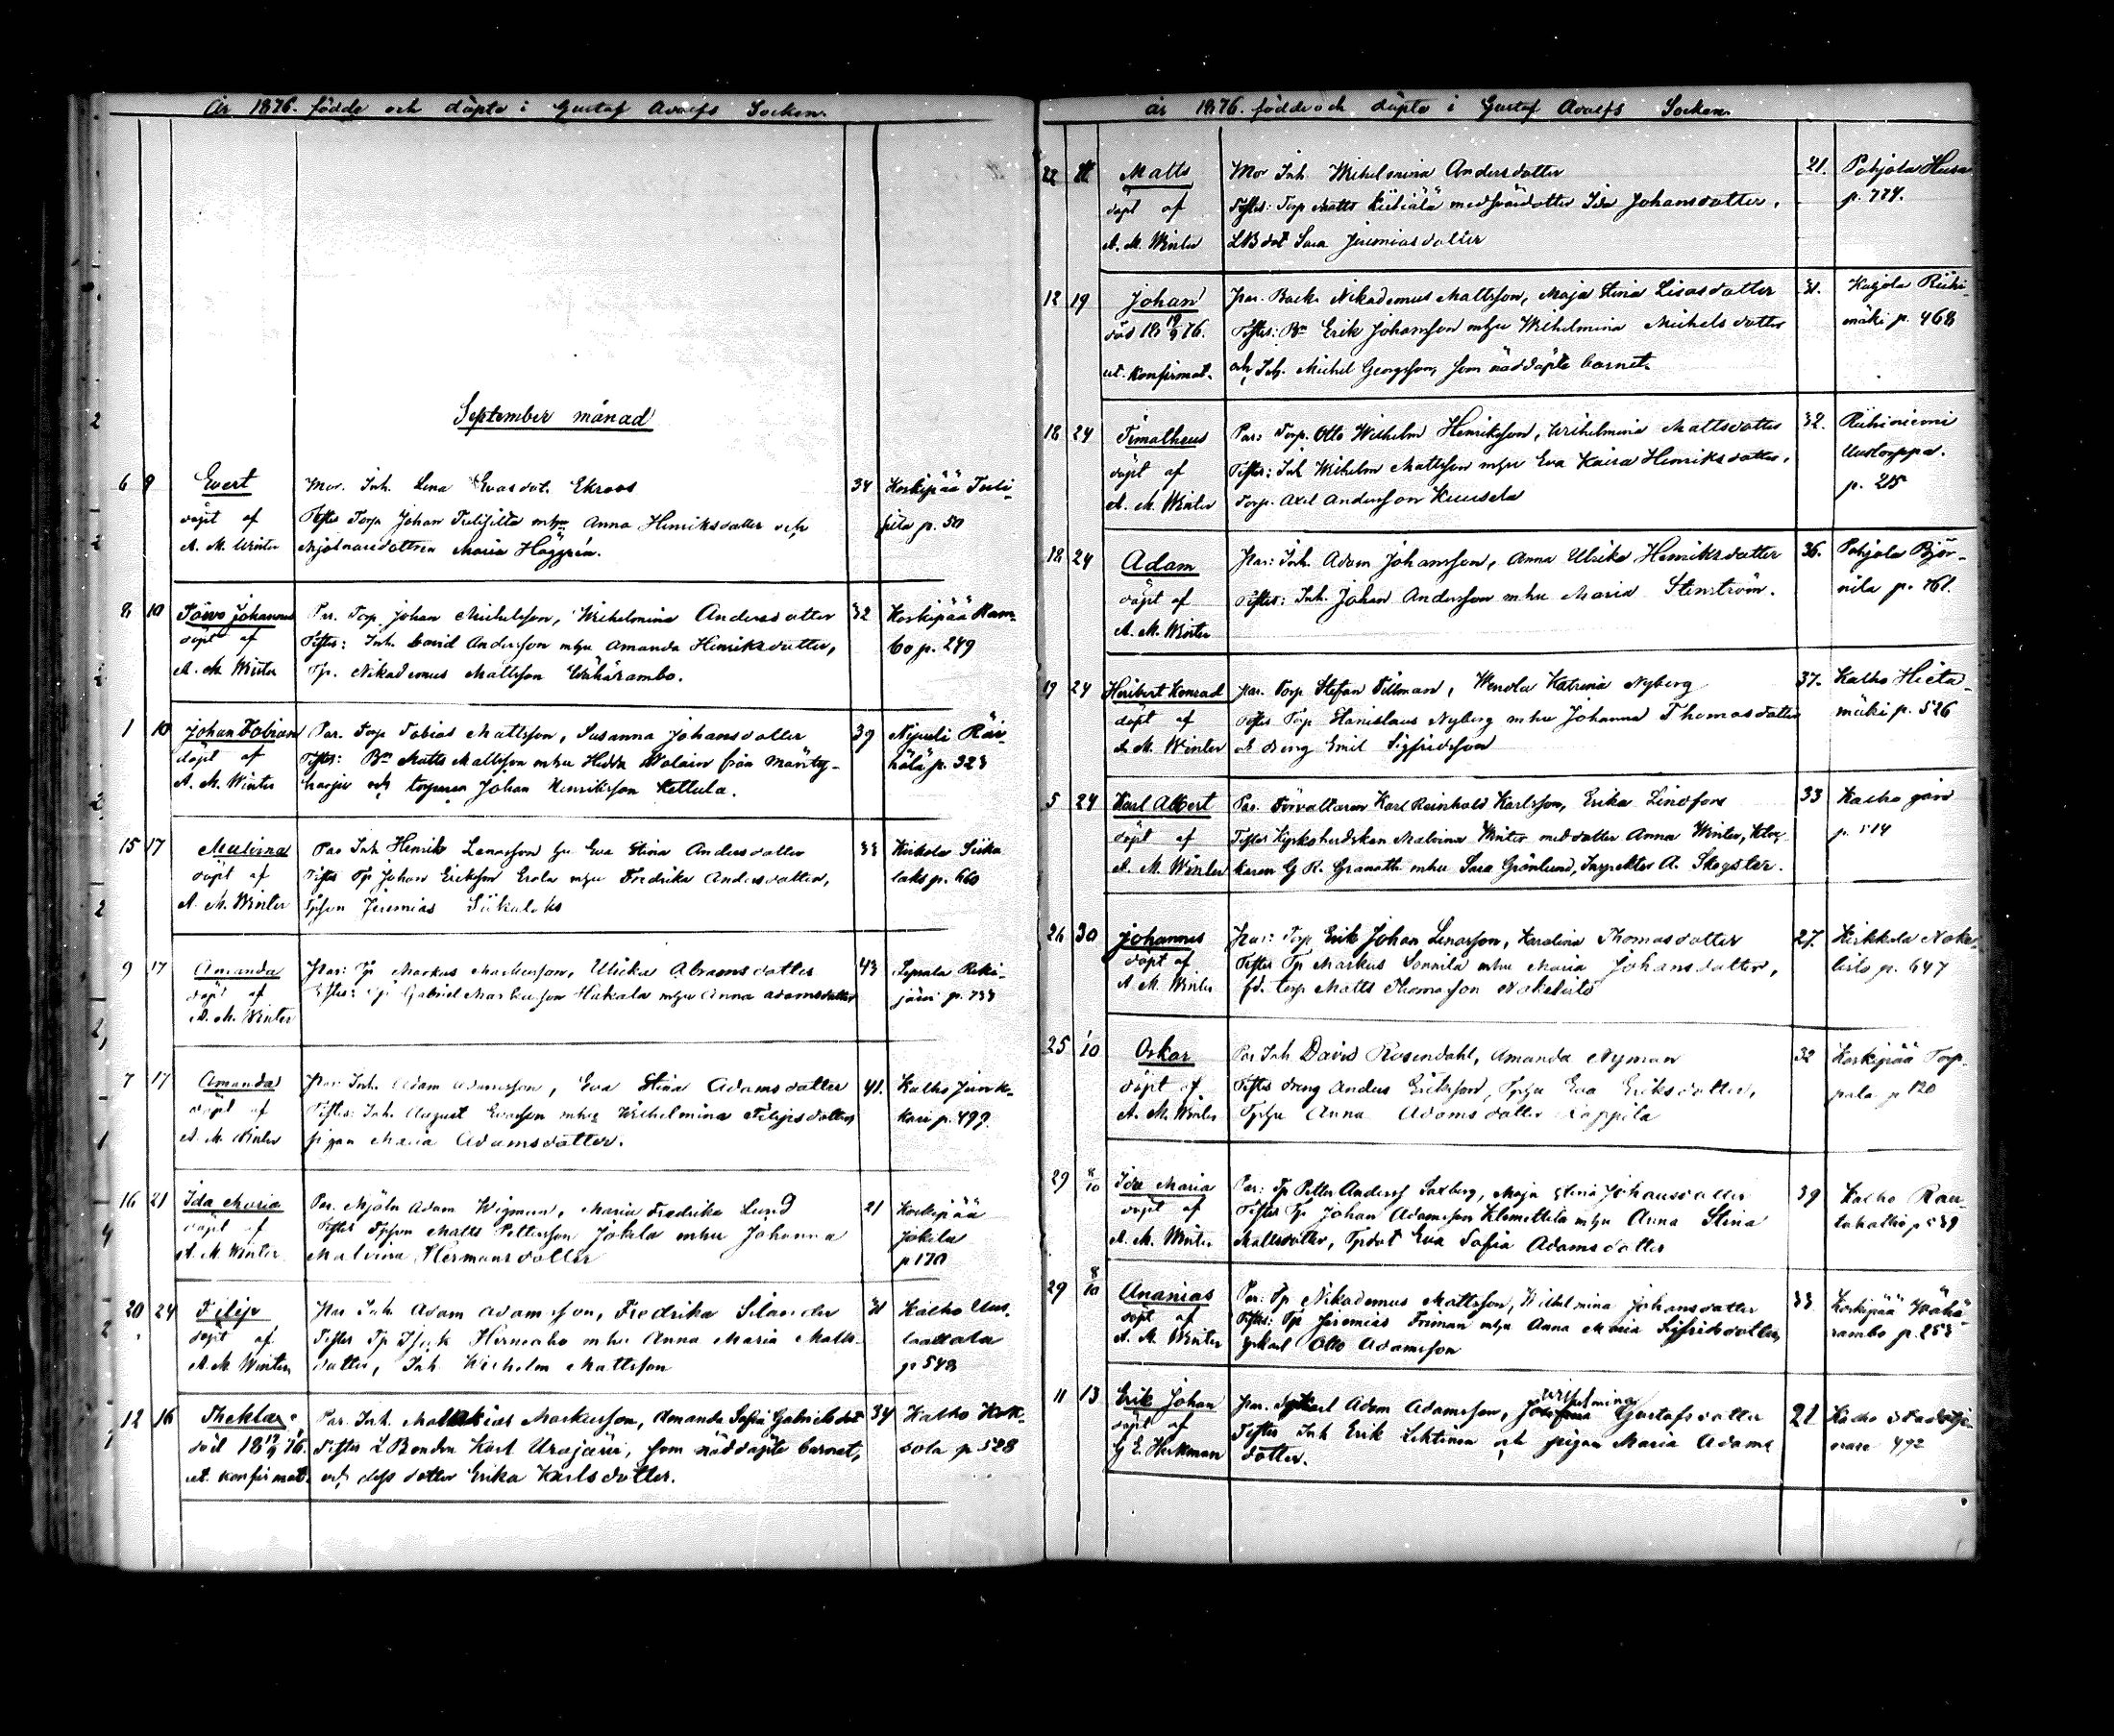 År 1876. födde och döpte i Gustaf Adolfs Socken.
September månad
6 9 Evert Mor. Inh. Lina Evasdot. Ekroos 34 Koskipää Tuli-
döpt af Testes Torp Johan Tulisilta mhu Anna Henriksdotter och pila p. 50
A. M. Winter Mjölnaredottren Maria Häggrén.
8 10 Toivo Johannes Par. Torp. Johan Michelsson, Wilhelmina Andersdotter 32 Koskipää Ram-
döpt af Testes: Inh. David Andersson mhu Amanda Henriksdotter, bo p. 249
A. M. Winter Tp. Nikodemus Mattsson Wähärambo.
1 10 Johan Tobias Par. Torp Tobias Mattsson, Susanna Johansdotter 39 Nipuli Räi-
döpt af Testes: Bn Matts Mattsson mhu Hedda från Mänty-
A. M. Winter harju och torparen Johan Henriksson Kettula.
15 17 Par Inh Henrik hu Eva Stina Andersdotter 33
döpt af Testes Tp Johan Eriksson Erola mhu Fredrika Andersdotter, laks p. 660
A. M. Winter Tpson Jeremias Siikalaks
9 17 Amanda Par: Tp Markus Markusson, Ulrika Abramsdotter 43
döpt af Testes: Tp Gabriel Markusson Hakala mhu Anna Adamsdotter
A. M. Winter
7 17 Amanda Par Inh. Adam Adamsson, Eva Stina Adamsdotter 41. Kalho Junk-
döpt af Testes: Inh. August Evasson mhu Wilhelmina Filipsdotter kari p. 499
A. M. Winter pigan Maria Adamsdotter.
16 21 Ida Maria Par. Mjöln Adam Wigman, Maria Fredrika Lund 21 Koskipää
döpt af Testes Tpson Matts Pettersson Jokela mhu Johanna Jokela
A. M. Winter Malvina Hermansdotter p 170
20 24 Filip Par Inh Adam Adamsson, Fredrika Silander 31 Kalho Uus-
döpt af Testes Tp Isak Hirmaho mhu Anna Maria Matts-
A. M. Winter dotter, Inh Wilhelm Mattsson p 548
12 16 Thekla Par. Inh. Malakias Markusson, Amanda Sofia Gabrielsdot 34 Kalho Kok-
död 18 17/9 76. Testes LBonden Karl Urajärvi, som nöddöpte barnet, sola p 528
et. konfirmat. och dess dotter Erika Karlsdotter.
år 1876. födde och döpte i Gustaf Adolfs Socken.
22 Matts Mor Inh. Wilhelmina Andersdotter 21. Pohjola Husu
döpt af Testes: Torp Matts med svärdotter Ida Johansdotter, p. 774.
A. M. Winter LBdot Sara Jeremiasdotter
12 19 Johan Par. Back. Nikodemus Mattsson, Maja Stina Lisasdotter 31. Karjola Riihi-
död 18 19/9 76. Testes: Bn Erik Johansson mhu Wilhelmina Michelsdotter mäki p. 468
et. konfirmat. och Inh. Michel Georgsson, som nöddöpte barnet.
18 24 Timotheus Par: Torp. Otto Wilhelm Henriksson, Wilhelmina Mattsdotter 32. Riihiniemi
döpt af Testes: Inh Wilhelm Mattsson mhu Eva Kaisa Henriksdotter, Uustorppa.
A. M. Winter Torp. Axel Andersson Kuusela p. 215
18 24 Adam Par: Inh. Adam Johansson, Anna Ulrika Henriksdotter 36. Pohjola Björ-
döpt af Testes: Inh. Johan Andersson mhu Maria Stenström. nila p. 761.
A. M. Winter
19 24 Heribert Konrad Par. Torp Stefan Tillman, Wendla Katrina Nyberg 37. Kalho Hieta-
döpt af Testes Torp Stanislaus Nyberg mhu Johanna Thomasdotter mäki p. 526
A. M. Winter o dreng Emil Sigfridsson
5 24 Karl Albert Par. Förvaltaren Karl Reinhold Karlsson, Erika Lindfors 33 Kalho gård
döpt af Testes Kyrkoherdskan Malvina Winter med dotter Anna Winter, Kloc- p. 514
A. M. Winter karen G R. Granath mhu Sara Grönlund, Inspektor A. Skogster.
26 30 Johannes Par: Torp Erik Johan Lenasson, Karolina Thomasdotter 27. Kirkkola Noke-
döpt af Testes Tp Markus Sonnila mhu Maria Johansdotter, listo p. 647
A. M. Winter fd. torp Matts Thomasson Nokelisto
25 1/10 Oskar Par Inh David Rosendahl, Amanda Nyman 32 Koskipää Torp-
döpt af Testes dreng Anders Eriksson, Tphu Eva Eriksdotter, pala p 120
A. M. Winter Tphu Anna Adamsdotter Lappila
29 8/10 Ida Maria Par: Tp Petter Anderss Saxberg, Maja Stina Johansdotter 39 Kalho Rau-
döpt af Testes Tp Johan Adamsson Klemettila mhu Anna Stina
A. M. Winter Mattsdotter, Tpdot Eva Sofia Adamsdotter
29 8/10 Ananias Par: Tp Nikodemus Mattsson, Wilhelmina Johansdotter 33 Koskipää Wähä-
döpt af Testes: Tp Jeremias Friman mhu Anna Maria Sigfridsdotter, rambo p. 253
A. M. Winter ykarl Otto Adamsson
11 13 Erik Johan Par. Adam Adamsson, Wilhelmina Gustafsdotter 21 Kalho
döpt af Testes Inh Erik Lehtinen och pigan Maria Adams 492
G E. Herkman dotter.